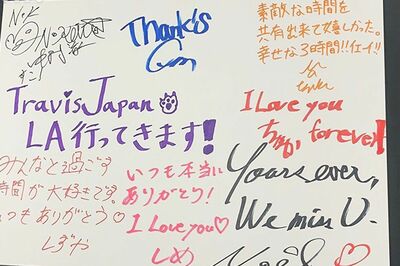 N.K
Thanks
素敵な時間を
共有出来て嬉しかった。
幸せな3時間!!イエイ!!
Travis Japan
LA行ってきます!
I Love you
forever!
みんなと過ごす
時間が大好きです。
いつもありがとう♡
しずや
いつも本当に
ありがとう!
I Love you♡
しめ
Yours ever,
We miss U.